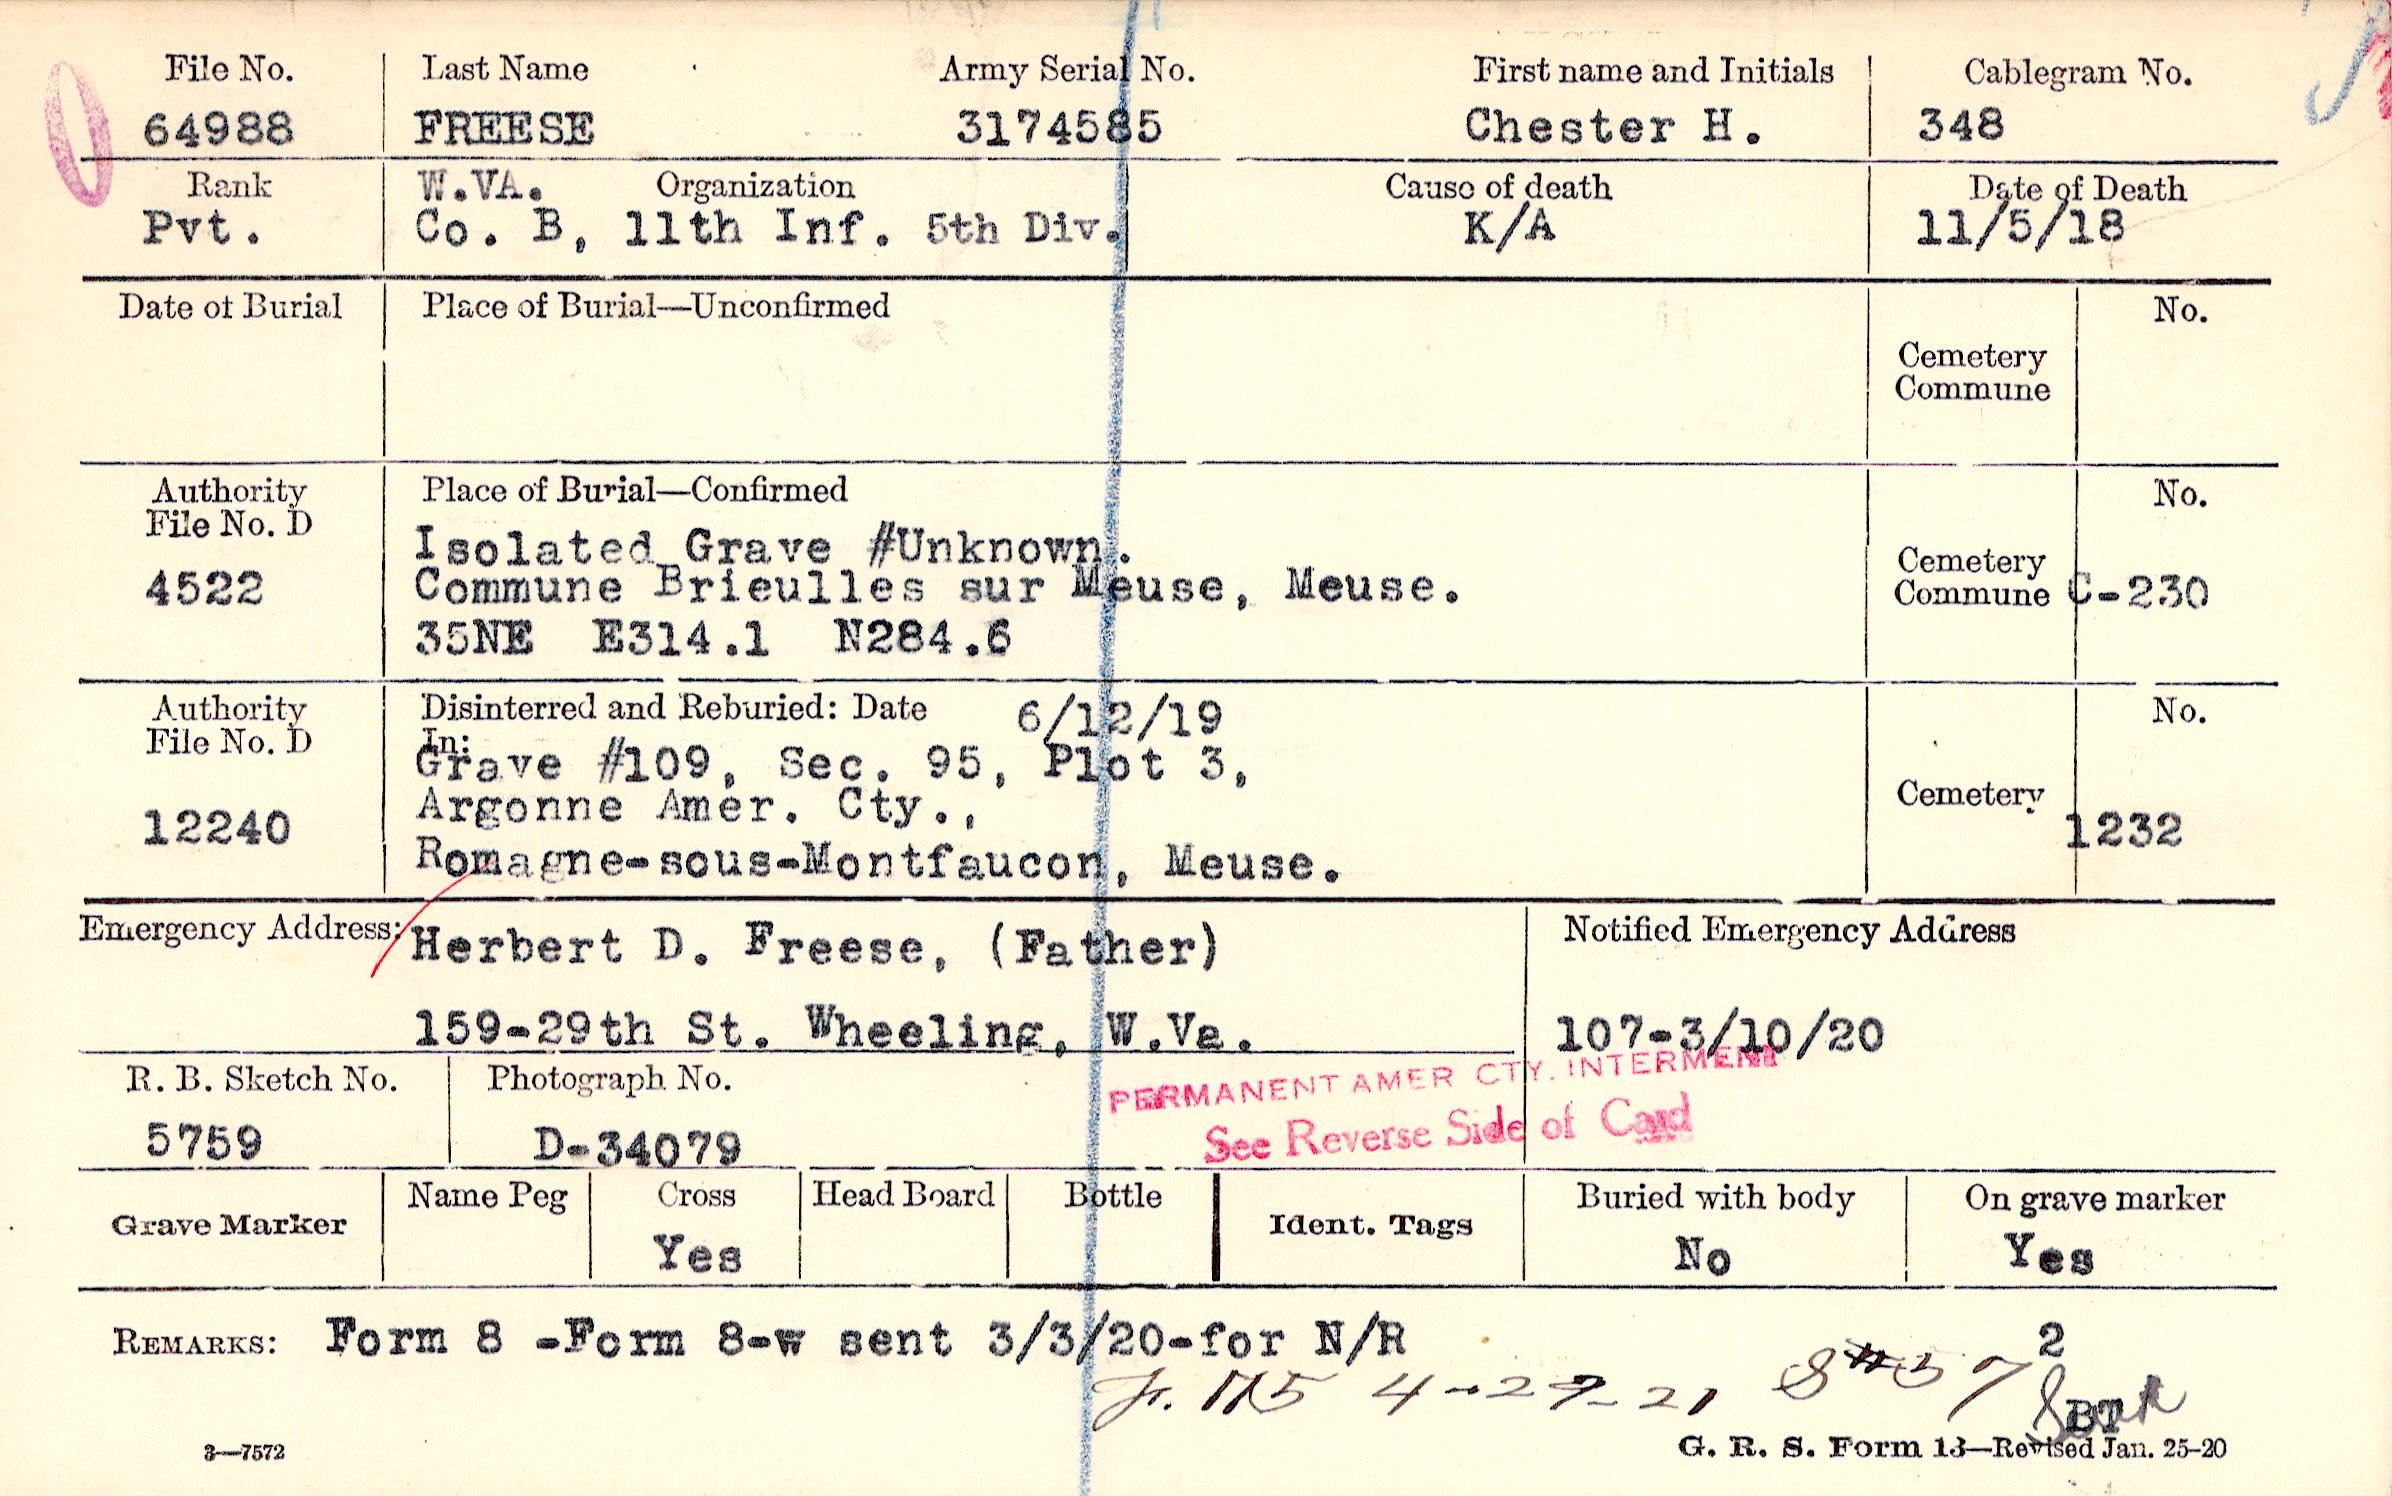 File No. Last Name Army Serial No. First name and Initials Cablegram No.
64988 FREESE 3174585 Chester H. 348
Rank W.VA. Organization Cause of death Date of Death
Pvt. Co. B, 11th Inf. 5th Div. K/A 11/5/18
Date of Burial Place of Burial—Unconfirmed No.
Cemetery
Commune
Authority Place of Burial—Confirmed No.
File No. D
Isolated Grave #Unknown.
4522 Commune Brieulles sur Meuse, Meuse. Cemetery
Commune C-230
35NE E314.1 N284.6
Authority Disinterred and Reburied: Date 6/12/19 No.
File No. D In:
Grave #109, Sec. 95, Plot 3,
Argonne Amer. Cty., Cemetery
12240 1232
Romagne-sous-Montfaucon, Meuse.
Emergency Address: Herbert D. Freese, (Father) Notified Emergency Address
159-29th St. Wheeling, W.Va. 107-3/10/20
R. B. Sketch No. Photograph No. PERMANENT AMER CTY. INTERMENT
5759 D-34079 See Reverse Side of Card
Grave Marker Name Peg Cross Head Board Bottle Ident. Tags Buried with body On grave marker
Yes No Yes
REMARKS: Form 8 -Form 8-w sent 3/3/20-for N/R 2
4-29-21
BT
3—7572 G. R. S. Form 13—Revised Jan. 25-20